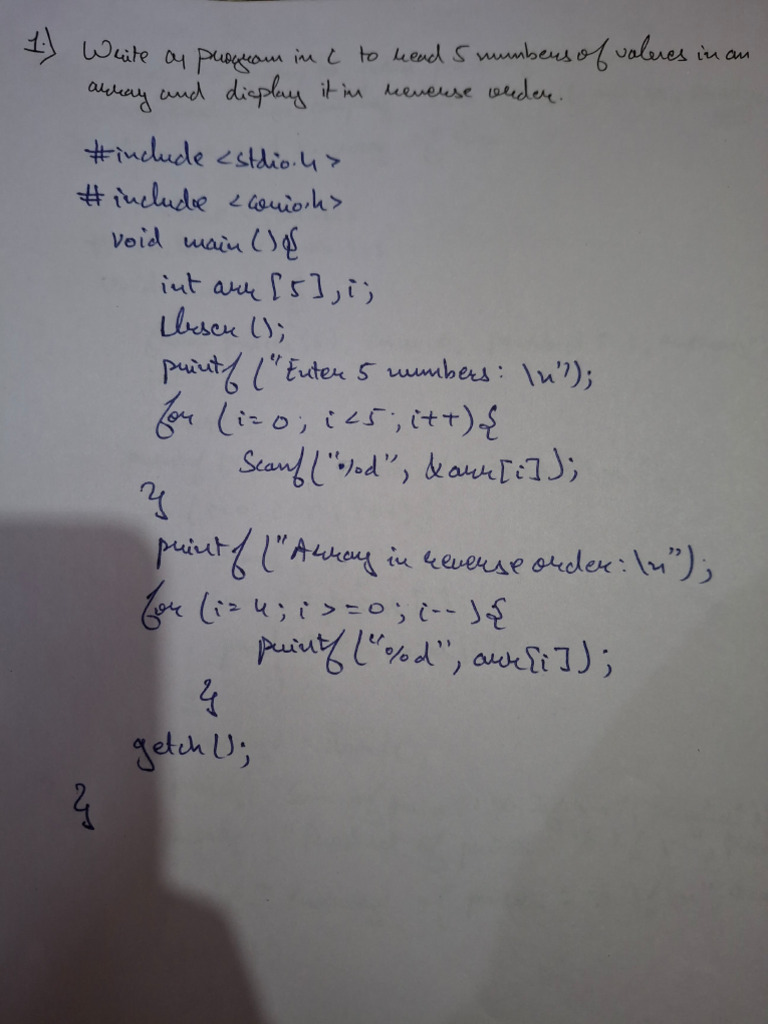 1.) Write a program in C to read 5 numbers of values in an
array and display it in reverse order.
#include <stdio.h>
#include <conio.h>
void main (){
int arr [5], i;
clrscr ();
printf ("Enter 5 numbers: \n");
for (i=0; i<5; i++){
Scanf("%d", &arr[i]);
}
printf ("Array in reverse order:\n");
for (i=4; i>=0; i--){
printf ("%d", arr[i]);
}
getch();
}